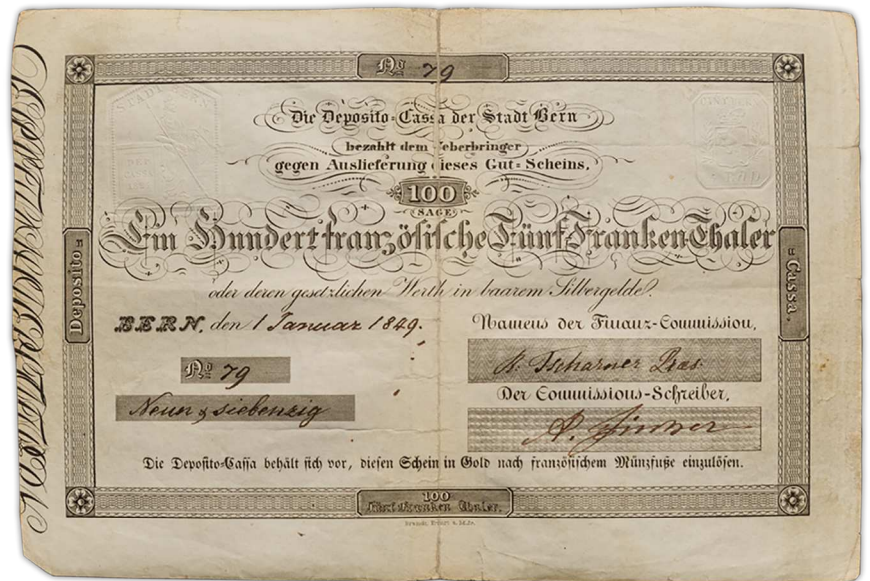 No 79
Die Deposito=Cassa der Stadt Bern
bezahlt dem Ueberbringer
gegen Auslieferung dieses Gut=Scheins,
100
(SAGE)
Ein Hundert französische Fünf Franken Thaler
oder deren gesetzlichen Werth in baarem Silbergelde.
BERN, den 1 Januar 1849.
Namens der Finanz-Commission,
No 79
Neun & siebenzig
Tscharner Præs.
Der Commissions-Schreiber,
Die Deposito-Cassa behält sich vor, diesen Schein in Gold nach französischem Münzfuße einzulösen.
Deposito=
=Cassa.
100
Fünf Franken Thaler.
STADT BERN